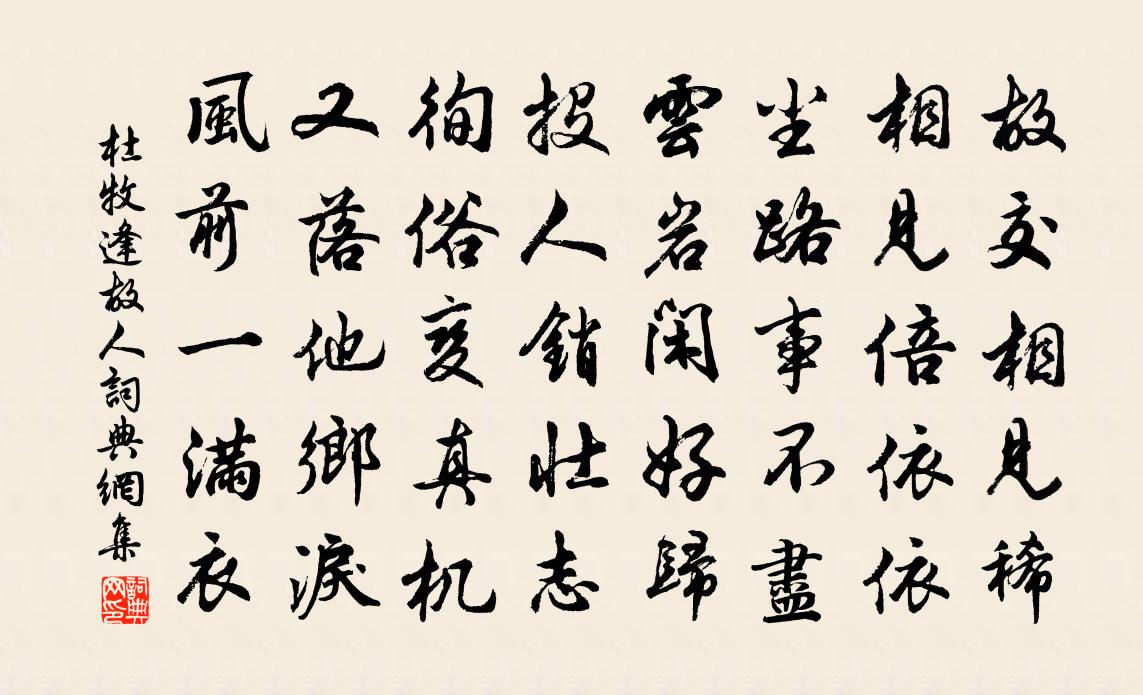 故交相見稀
相見倍依依
尘路事不盡
雲岩閑好歸
投人銷壯志
徇俗变真机
又落他鄉淚
風前一滿衣
杜牧逢故人詞典網集
詞典网印